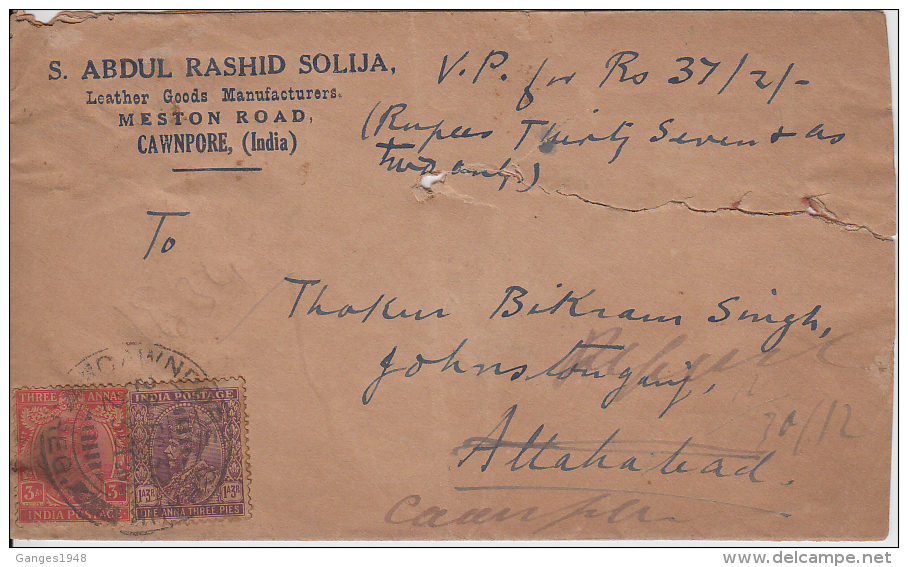 S. ABDUL RASHID SOLIJA,
Leather Goods Manufacturers.
MESTON ROAD,
CAWNPORE, (India)
V.P. for Rs 37/2/-
(Rupees Thirty Seven & as
two only)
To
Thakur Bikram Singh,
Johnstonganj,
Allahabad.
30/12
Cawnpore
THREE ANNAS
3A 3A
INDIA POSTAGE
INDIA POSTAGE
1A3P 1A3P
ONE ANNA THREE PIES
CAWNPORE
REG
Ganges1948
delcampe.net